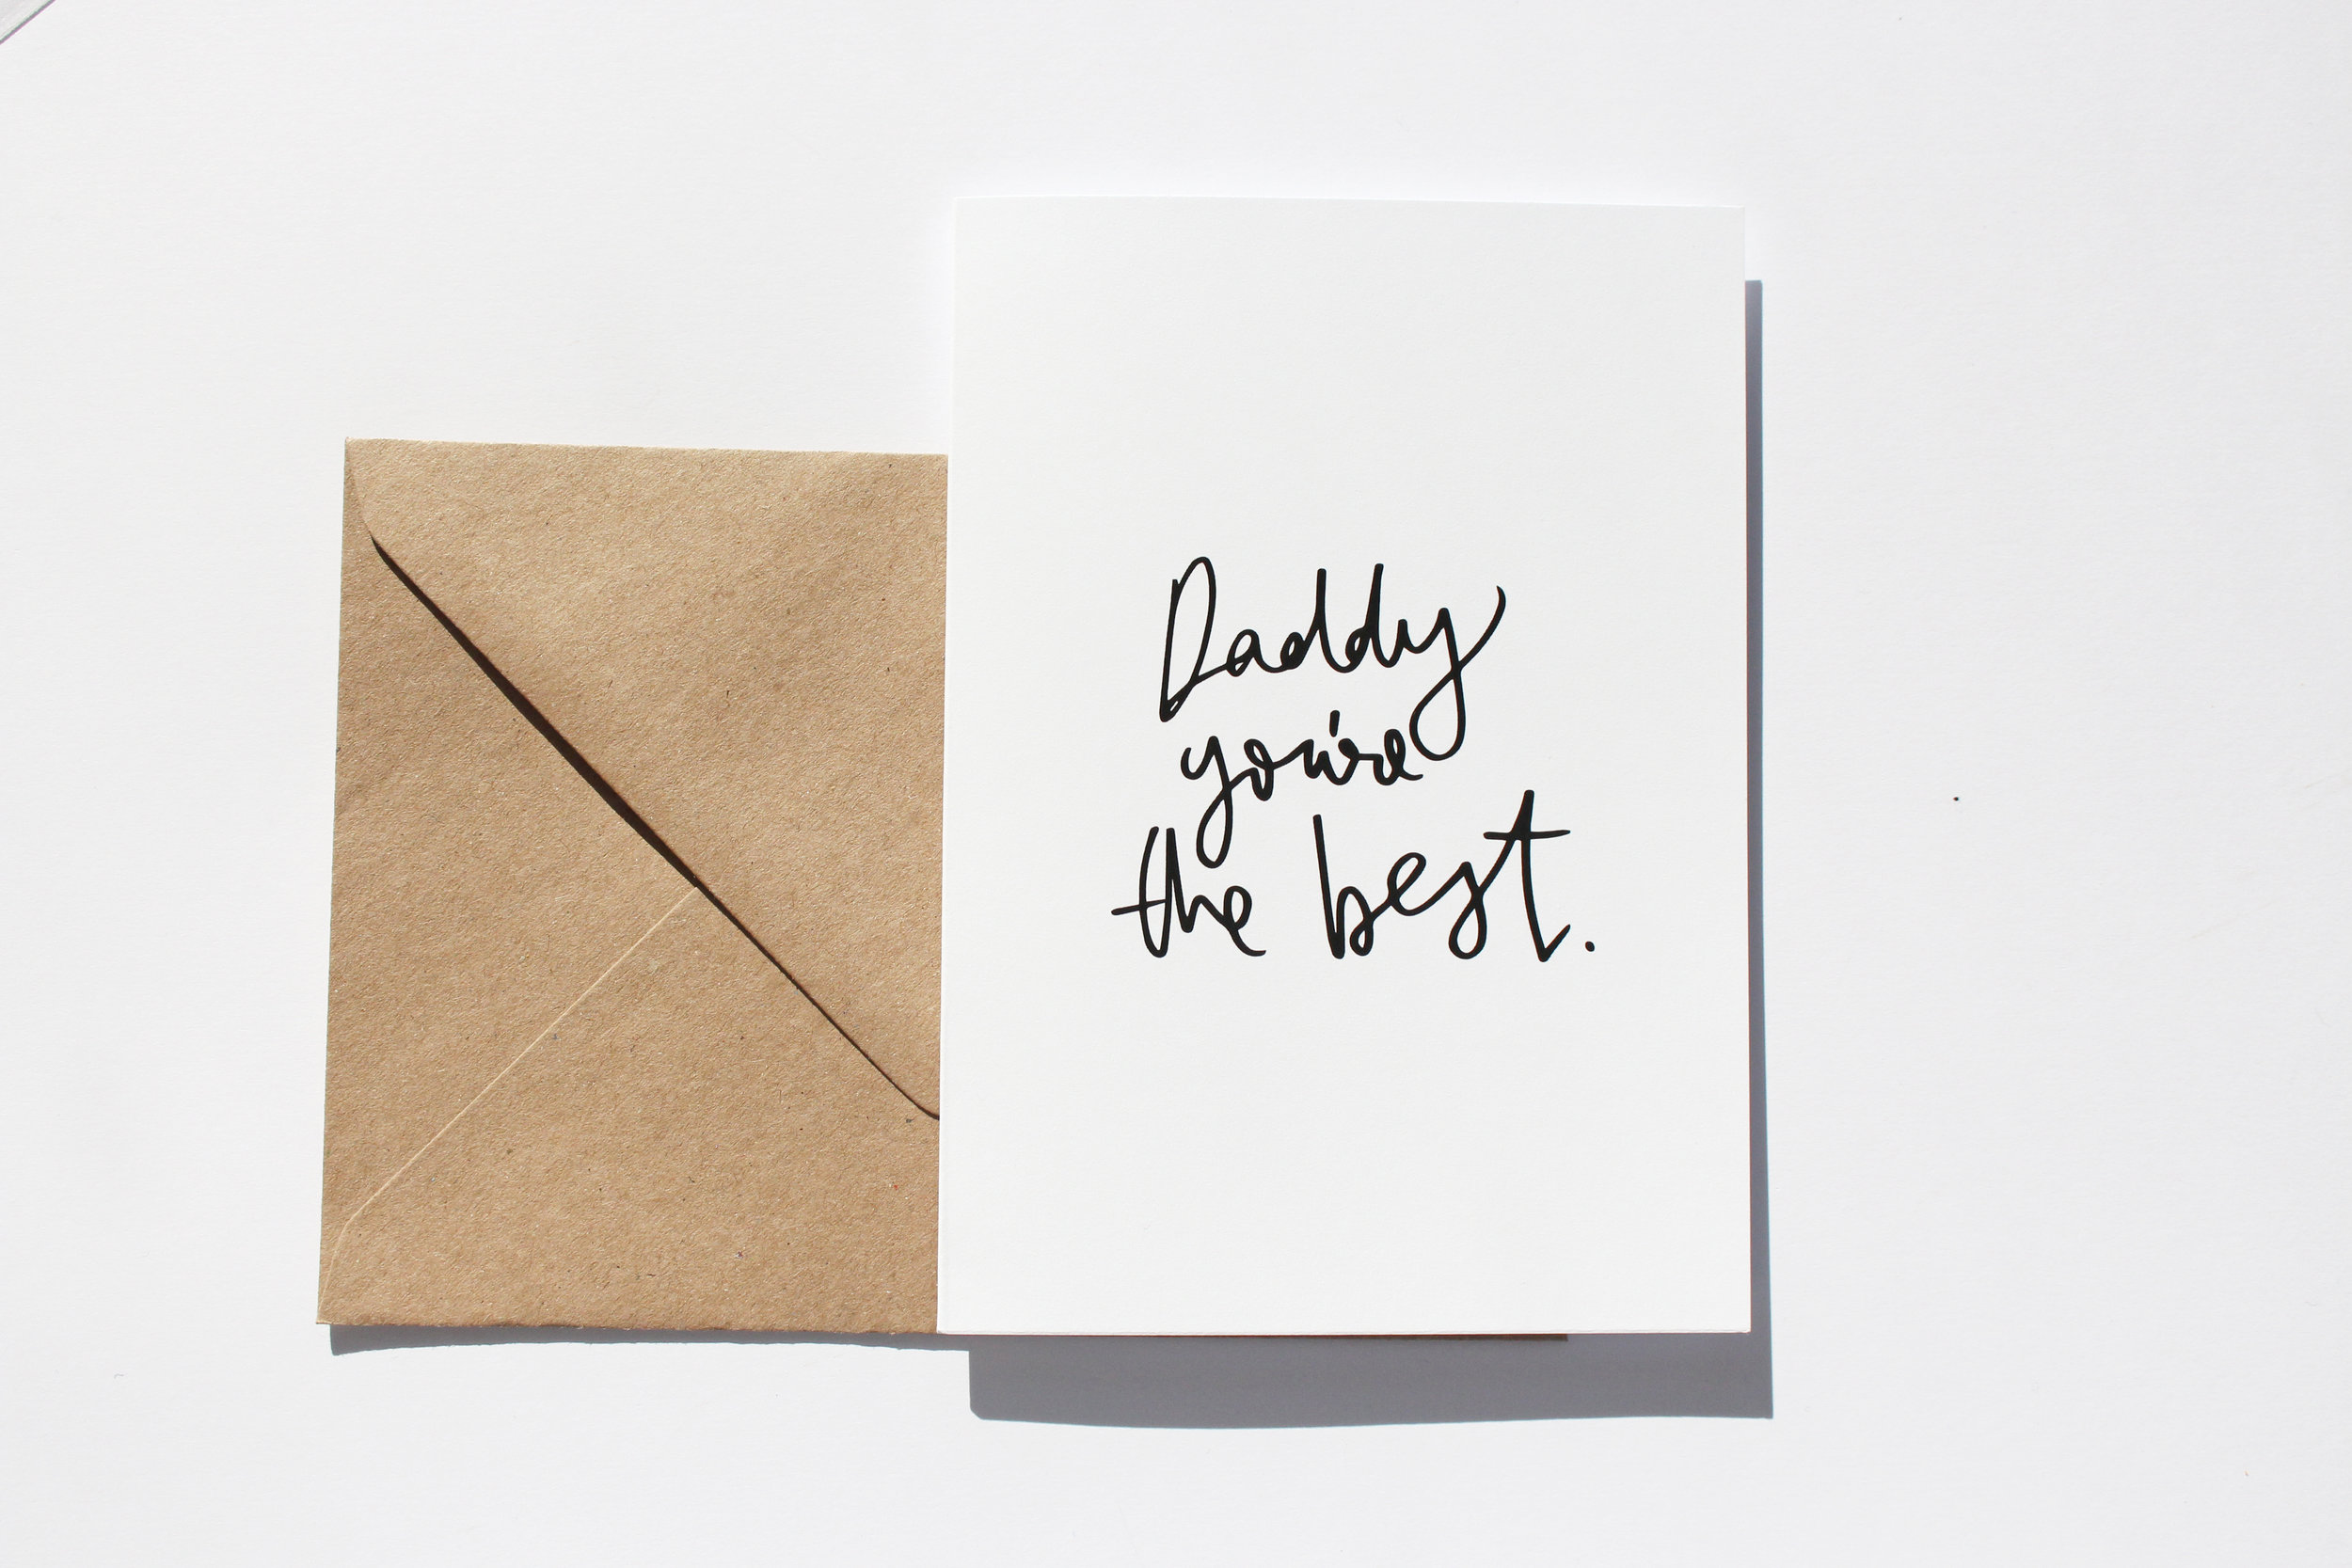 Daddy
you're
the best.